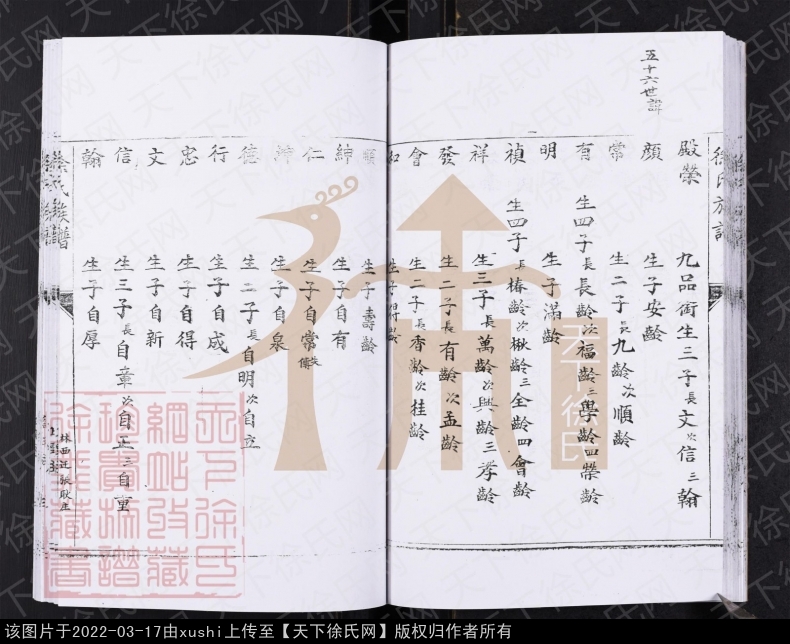 五十六世諱
徐氏族譜
殿榮 九品銜生三子長文次信三翰
顏 生子安齡
常 生二子長九齡次順齡
有 生四子長長齡次福齡三學齡四榮齡
明 生子滿齡
禎 生四子長椿齡次楸齡三全齡四會齡
祥 生三子長萬齡次興齡三孝齡
發 生二子長有齡次孟齡
會 生二子長香齡次桂齡
和 生子得齡
順 生子壽齡
紳 生子自有
仁 生子自常失傳
坤 生子自泉
德 生二子長自明次自立
行 生子自成
忠 生子自得
文 生子自新
信 生三子長自章次自正三自重
翰 生子自厚
徐氏族譜
天下徐氏網站收藏
珍貴族譜
徐氏藏書
天下徐氏
天下徐氏网
该图片于2022-03-17由xushi上传至【天下徐氏网】版权归作者所有